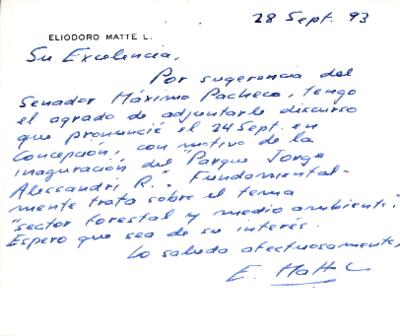 28 Sept. 93
ELIODORO MATTE L.
Su Excelencia,
Por sugerencia del
Senador Máximo Pacheco, tengo
el agrado de adjuntarle discurso
que pronuncié el 24 Sept. en
Concepción, con motivo de la
inaguración del "Parque Jorge
Alessandri R.". Fundamental-
mente trata sobre el tema
"sector forestal y medio ambiente".
Espero que sea de su interés.
Lo saluda afectuosamente,
E. Matte L